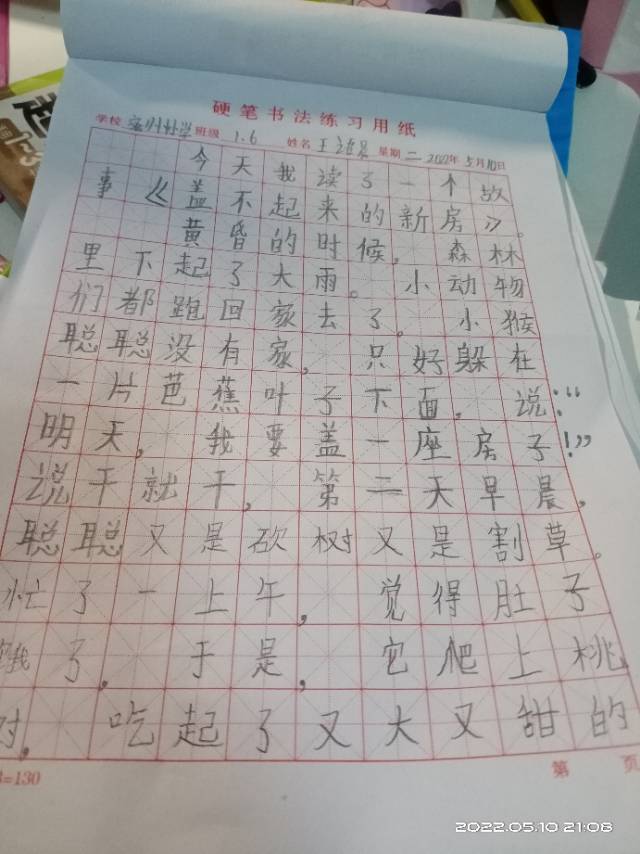 硬笔书法练习用纸
学校 班级 1.6 姓名 王 星期 二 2022年5月10日
今天我读了一个故
事《盖不起来的新房》。
黄昏的时候，森林
里下起了大雨。小动物
们都跑回家去了。小猴
聪聪没有家，只好躲在
一片芭蕉叶子下面，说：“
明天，我要盖一座房子！”
说干就干，第二天早晨，
聪聪又是砍树又是割草。
忙了一上午，觉得肚子
饿了，于是，它爬上桃
树，吃起了又大又甜的
=130
第 页
2022.05.10 21:08